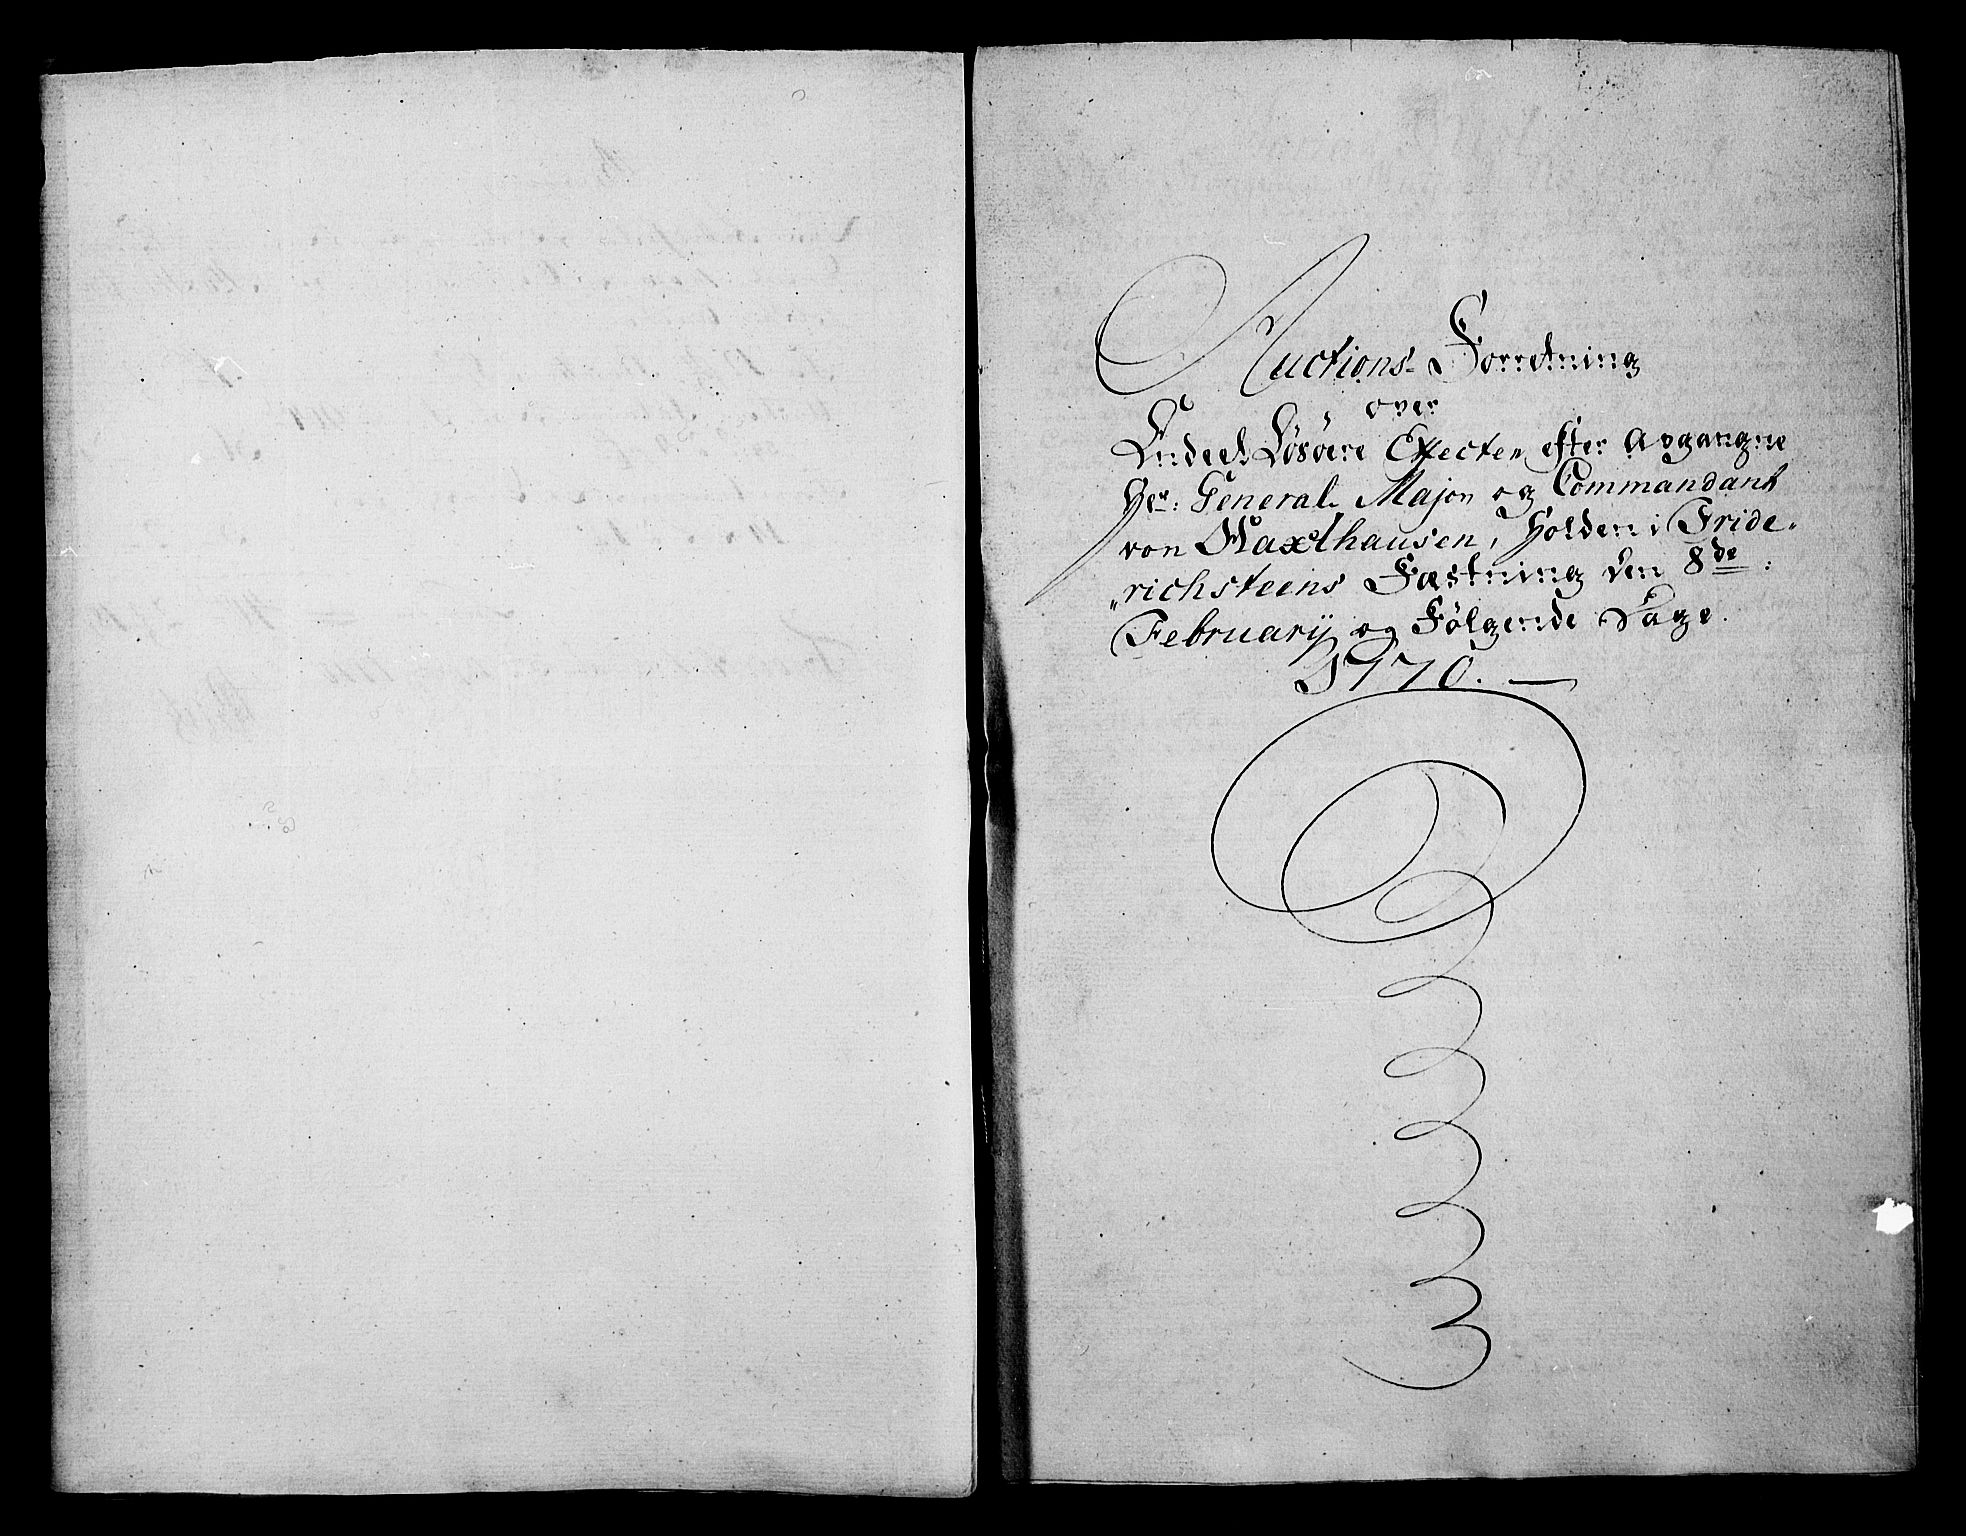 Auctions- Forretning
over
Endeel Løsøere Effecter efter Avgangne
Her: General Major og Commandant
von Haxthausen, Holden i Fride-
„richsteens Fæstning den 8de:
Februarij og Følgende Dage.
1770.